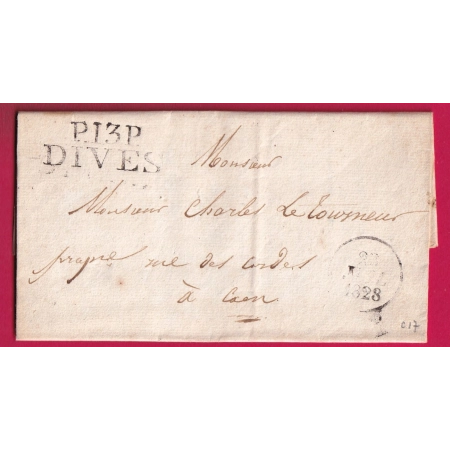 P.13.P.
DIVES
Monsieur
Monsieur Charles Le Tourneur
propre rue des cordes
à Caen
1828
017